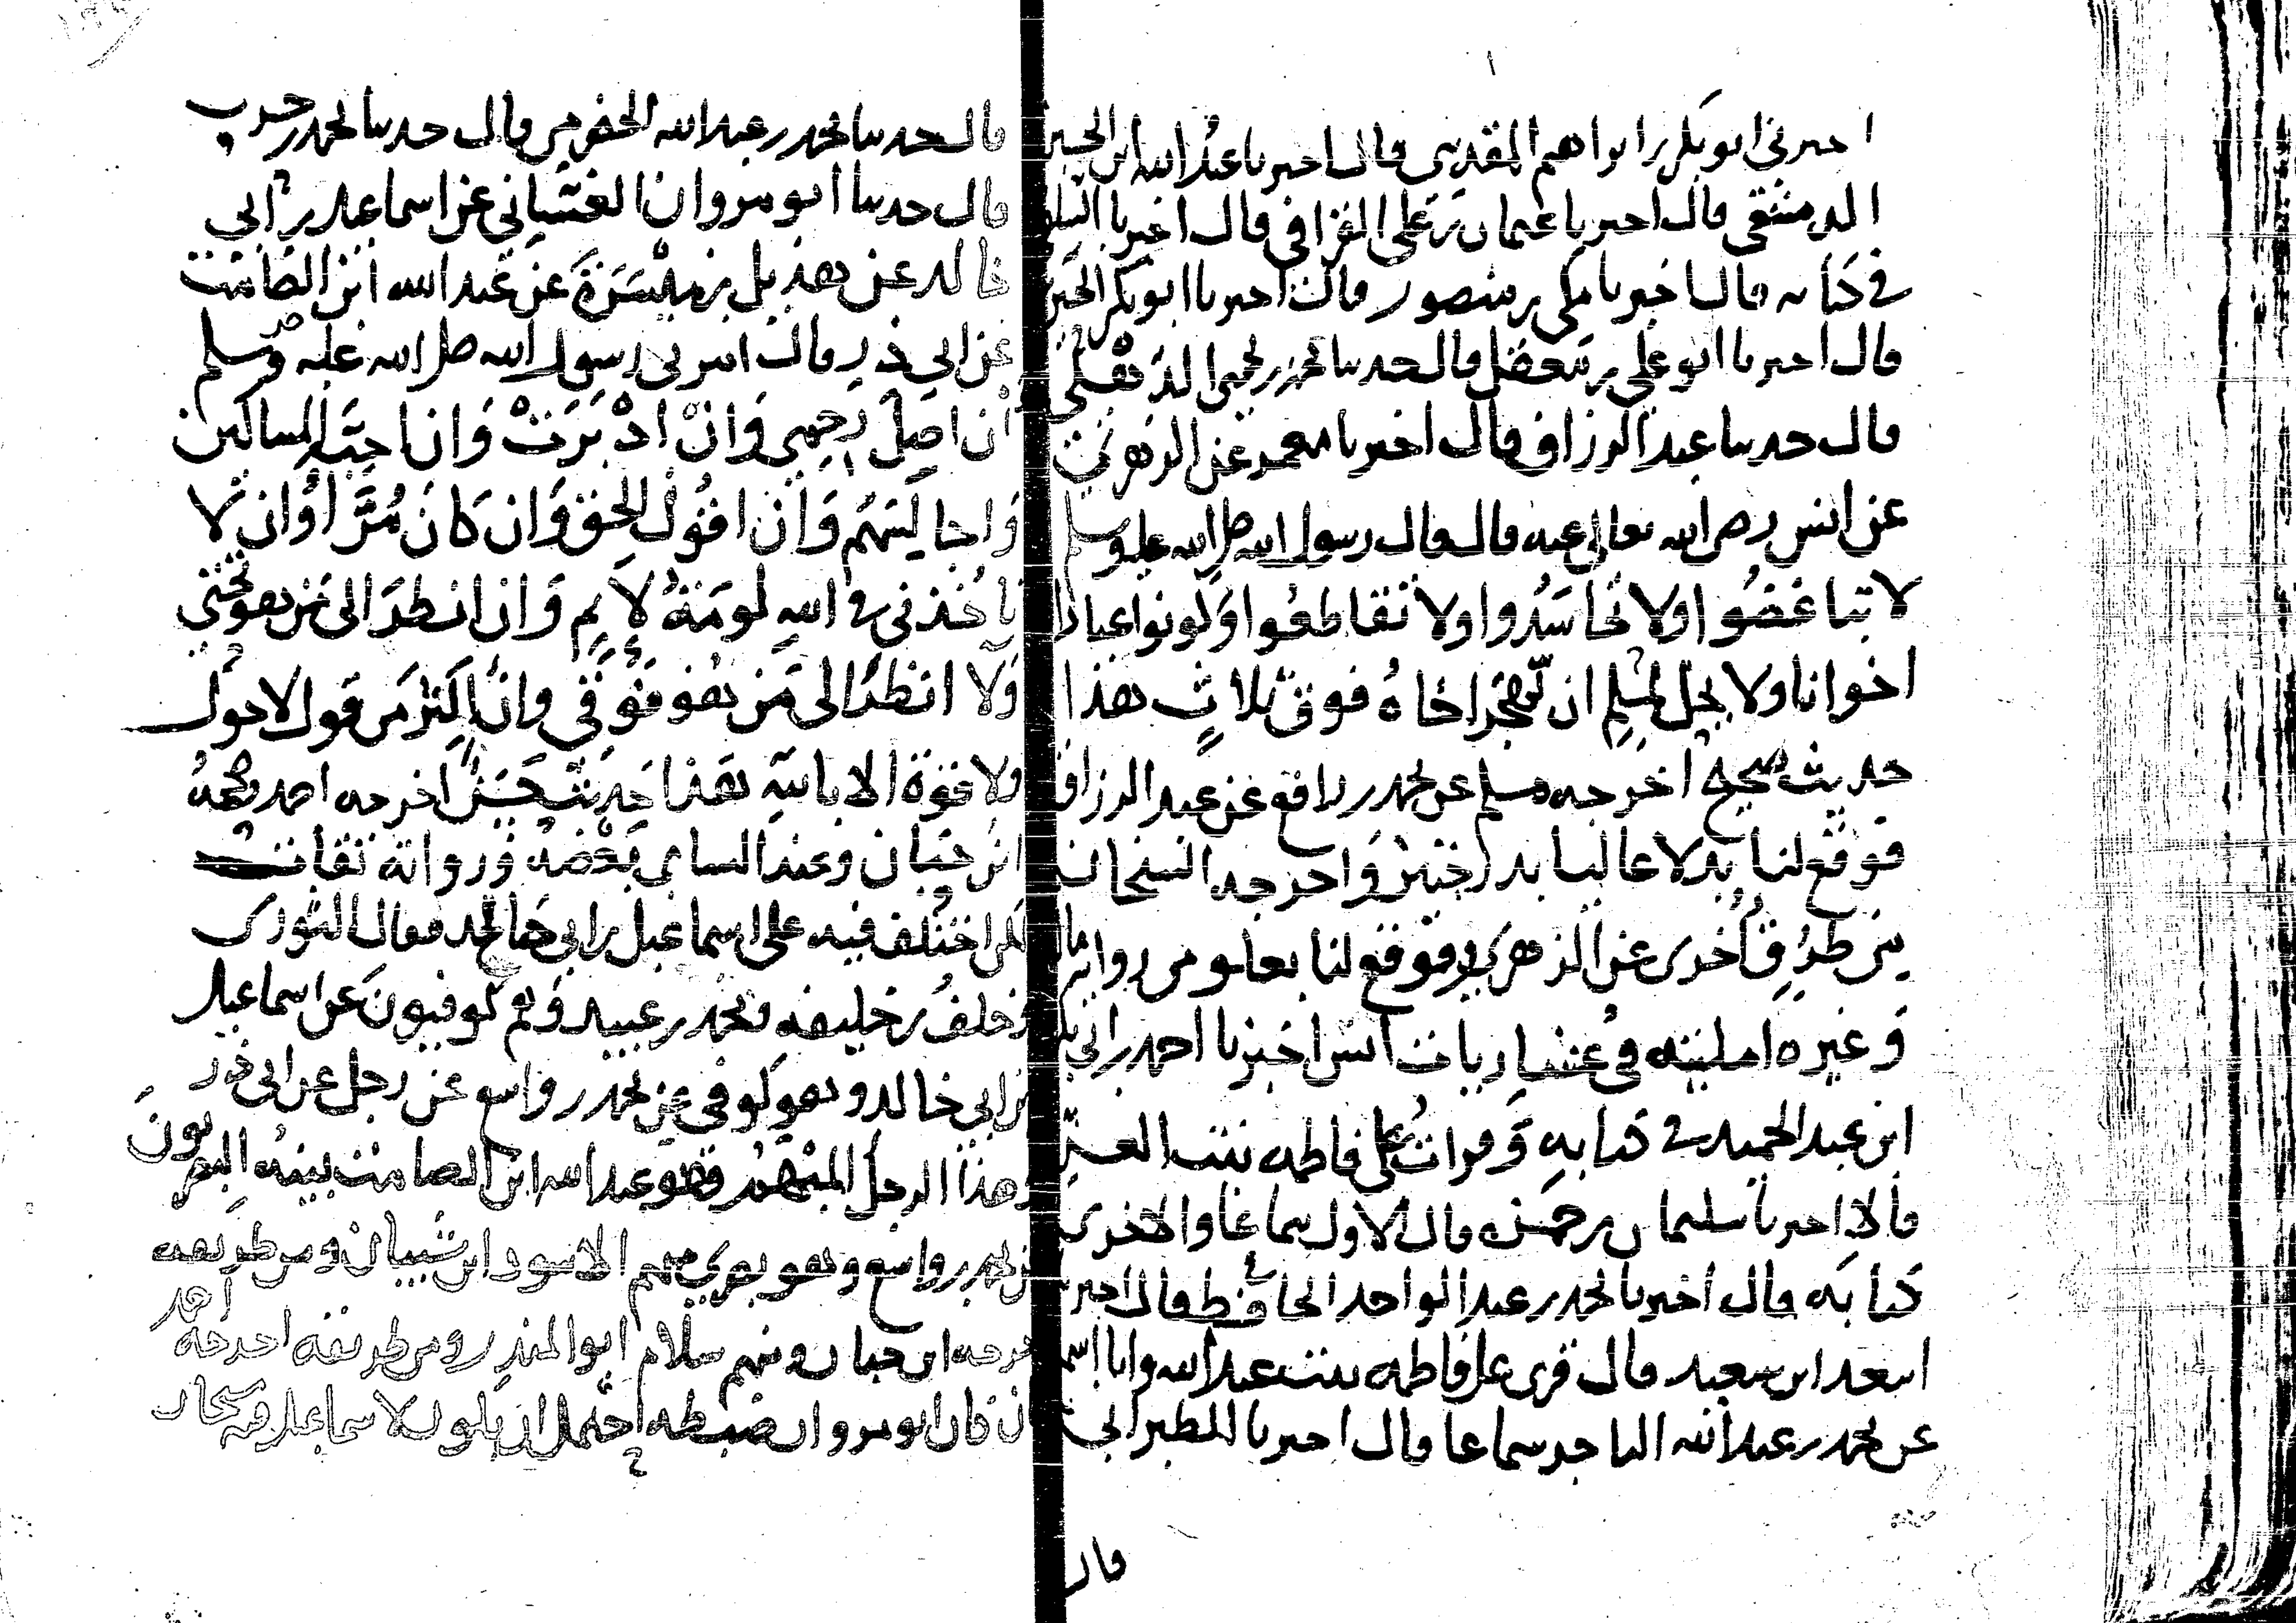 اخبرني ابو بكر بن ابراهيم المقدسي قال اخبرنا عبد الله ابن الحسين
الدمشقي قال اخبرنا عثمان بن علي القرافي قال اخبرنا السلفي
في كتابه قال اخبرنا مكي بن منصور قال اخبرنا ابو بكر الحيري
قال اخبرنا ابو علي بن معقل قال حدثنا محمد بن يحيى الذهلي
قال حدثنا عبد الرزاق قال اخبرنا معمر عن الزهري
عن انس رضي الله تعالى عنه قال قال رسول الله صلى الله عليه وسلم
لا تباغضوا ولا تحاسدوا ولا تقاطعوا وكونوا عباد الله
اخوانا ولا يحل لمسلم ان يهجر اخاه فوق ثلاث هذا
حديث صحيح اخرجه مسلم عن محمد بن رافع عن عبد الرزاق
فوقع لنا بدلا عاليا بدرجتين واخرجه الشيخان
من طرق اخرى عن الزهري فوقع لنا بعلو من رواية مالك
وغيره امليته في عشاريات انس اخبرنا احمد بن ابي بكر
ابن عبد الحميد في كتابه وقرات على فاطمة بنت العز
قالا اخبرنا سليمان بن حمزة قال الاول سماعا والاخرى
كتابه قال اخبرنا محمد بن عبد الواحد الحافظ قال اخبرنا
اسعد ابن سعيد قال قرى على فاطمة بنت عبد الله وانا اسمع
عن محمد بن عبد الله التاجر سماعا قال اخبرنا الطبراني
قال
قال حدثنا محمد بن عبد الله الحضرمي قال حدثنا محمد بن حرب
قال حدثنا ابو مروان الغساني عن اسماعيل بن ابي
خالد عن هذيل بن ميسرة عن عبد الله ابن الصامت
عن ابي ذر قال امرني رسول الله صلى الله عليه وسلم
ان اصل رحمي وان ادبرت وان احب المساكين
واجالسهم وان اقول الحق وان كان مرا وان لا
تاخذني في الله لومة لايم وان انظر الى من هو تحتي
ولا انظر الى من هو فوقي وان اكثر من قول لا حول
ولا قوة الا بالله هذا حديث حسن اخرجه احمد وصححه
ابن حبان وعند النسائي بعضه ورواته ثقات
لكن اختلف فيه على اسماعيل بن ابي خالد فقال الثوري
وخلف بن خليفة ومحمد بن عبيد وهم كوفيون عن اسماعيل
بن ابي خالد وهو كوفي عن محمد بن واسع عن رجل عن ابي ذر
وهذا الرجل المبهم هو عبد الله ابن الصامت بينه البصريون
عن محمد بن واسع وهو بصري منهم الاسود ابن شيبان ومن طريقه
اخرجه ابن حبان ومنهم سلام ابو المنذر ومن طريقه اخرجه احمد
فان كان ابو مروان ضبطه احتمل ان يكون لاسماعيل فيه شيخان